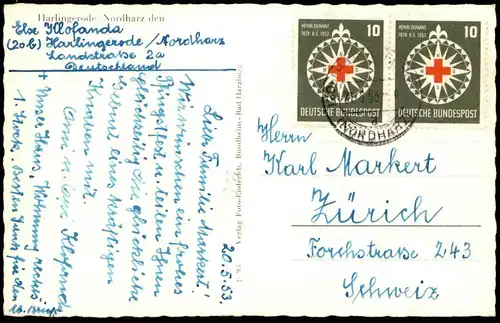 Harlingerode Nordharz den
Else Klofanda
(20b) Harlingerode/Nordharz
Landstraße 2a
Deutschland
20.5.53.
Liebe Familie Markert!
Wir wünschen ein frohes
Pfingstfest u. teilen Ihnen
gleichzeitig die glückliche
Geburt eines kräftigen
Knaben mit.
+ Unser Haus, Wohnung rechts
1. Stock. Besten Dank für den
Verlag Foto-
Bündheim-Bad Harzburg
HENRI DUNANT
1828 8.5. 1953
10
DEUTSCHE BUNDESPOST
HENRI DUNANT
1828 8.5. 1953
10
DEUTSCHE BUNDESPOST
(NORDHARZ)
Herrn
Karl Markert
Zürich
Forchstraße 243
Schweiz